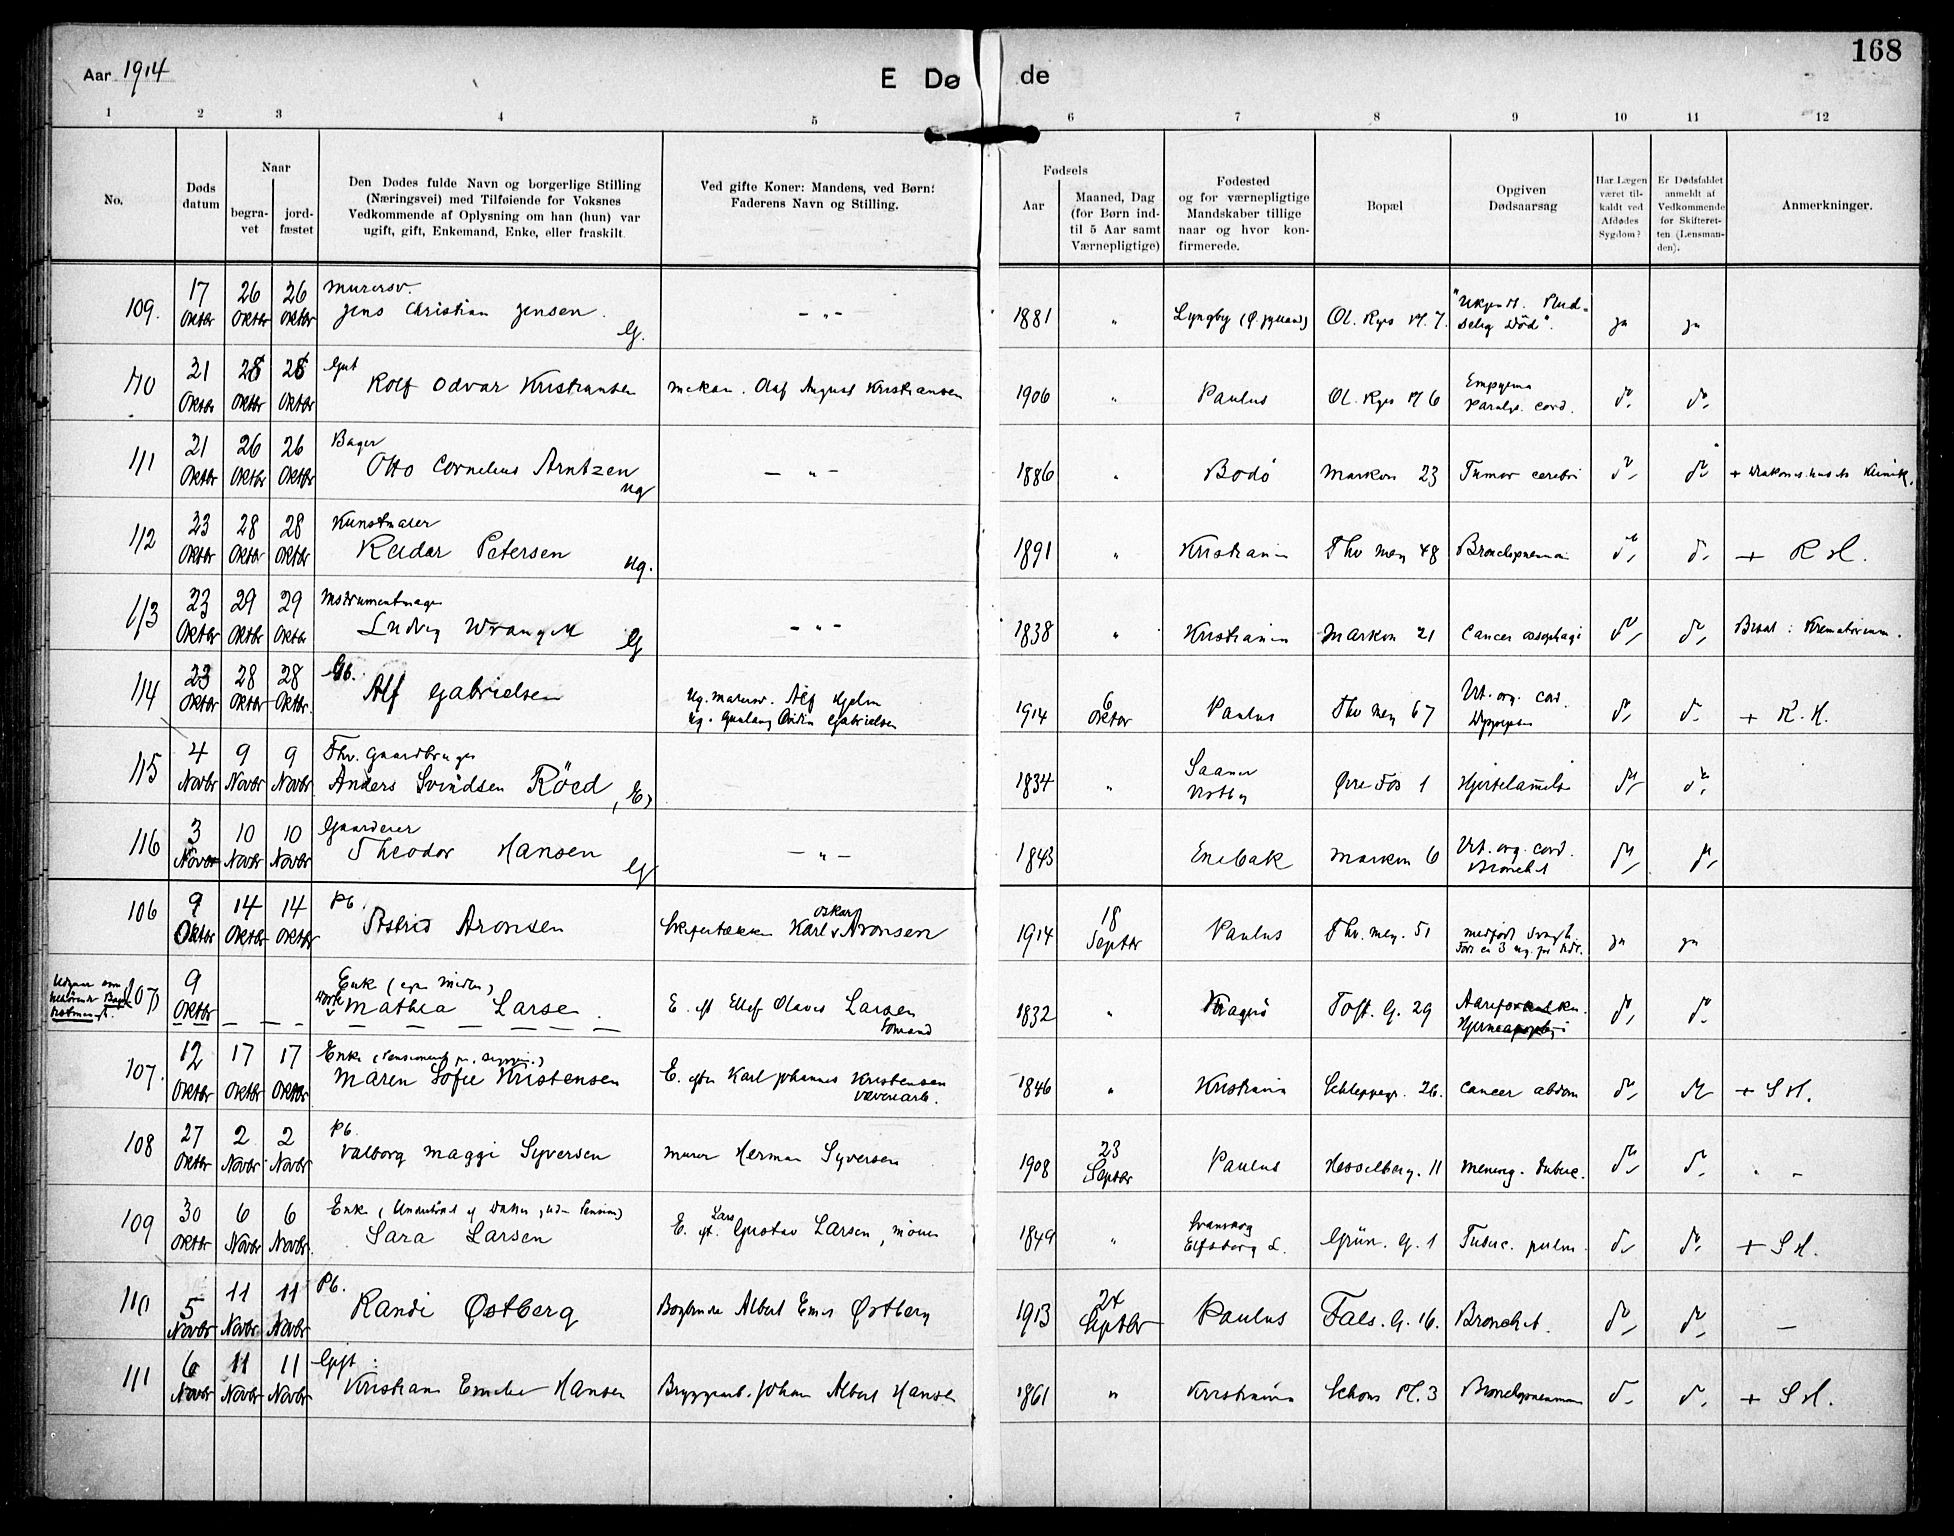 168
Aar 1914
E Dø de
1 2 3 4 5 6 7 8 9 10 11 12
No.
Døds datum
Naar
begra-vet
jord-fæstet
Den Dødes fulde Navn og borgerlige Stilling
(Næringsvei) med Tilføiende for Voksnes
Vedkommende af Oplysning om han (hun) var
ugift, gift, Enkemand, Enke, eller fraskilt.
Ved gifte Koner: Mandens, ved Børn:
Faderens Navn og Stilling.
Fødsels
Aar
Maaned, Dag
(for Børn ind-
til 5 Aar samt
Værnepligtige)
Fødested
og for værnepligtige
Mandskaber tillige
naar og hvor kon-
firmerede.
Bopæl
Opgiven
Dødsaarsag
Har Lægen
været til-
kaldt ved
Afdødes
Sygdom?
Er Dødsfaldet
anmeldt af
Vedkommende
for Skifteret-
ten (Lensman-
den).
Anmerkninger.
109. 17 Oktbr 26 Oktbr 26 Oktbr Murersv. Jens Christian Jensen. G. — „ — 1881 „ Lyngby (Ø. Jylland) Ol. Ryes Pl. 7. "Ukjendt. Plud-
selig Død". ja ja
110 21 Oktbr 28 Oktbr 28 Oktbr Gut Rolf Odvar Kristiansen Mekan. Olaf August Kristiansen 1906 „ Paulus Ol. Ryes Pl 6 Empyema
Paralys. cord. do do
111 21 Oktbr 26 Oktbr 26 Oktbr Bager Otto Cornelius Arntzen ug — „ — 1886 „ Bodö Markvn 23 Tumor cerebri do do + Diakonis.husets Klinik.
112 23 Oktbr 28 Oktbr 28 Oktbr Kunstmaler Reidar Petersen ug. 1891 „ Kristiania Thv Mey 48 Bronchopneumoni do do + R H.
113 23 Oktbr 29 Oktbr 29 Oktbr Instrumentmager Ludvig Wrangell G — „ — 1838 „ Kristiania Markvn 21 Cancer oesophagi do do Bisat: Krematorium.
114 23 Oktbr 28 Oktbr 28 Oktbr Gb. Alf Gabrielsen Ug. Malersv. Alf Hjelm
Ug. Gunlaug Gabrielsen 1914 6 Oktbr Paulus Thv Mey 67 Vit. org. cord.
Dyspepsi do do + R. H.
115 4 Novbr 9 Novbr 9 Novbr Fhv. Gaardbruger
Anders Svindsen Röed, E, 1834 „ Saaner
Vestby Øvre Fos 1 Hjertelammelse do do
116 3 Novbr 10 Novbr 10 Novbr Gaardeier
Theodor Hansen G — „ — 1843 Enebak Markvn 6 Vit. org. cord.
Bronchit do do
106 9 Oktbr 14 Oktbr 14 Oktbr Pb. Astrid Aronsen Skifertækker Karl Oskar Aronsen 1914 18 Septbr Paulus Thv. Mey. 51 Medfödt Svagh.
Född ca 3 ug. for tidl. ja ja
107 9 Oktbr — — — Enke
Mathea Larse E. eft Ellef Olaves Larsen
Sömand 1832 „ Kragerö Toft. G. 29 Aareforkalkn.
Hjerneapoplexi do do
107. 12 Oktbr 17 Oktbr 17 Oktbr Enke
Maren Sofie Kristensen E. efter Karl Johannes Kristensen
Væveriarb. 1846 „ Kristiania Schleppegr. 26. Cancer abdom do do + S H.
108 27 Oktbr 2 Novbr 2 Novbr Pb. Valborg Maggi Syversen Murer Herman Syversen 1908 23 Septbr Paulus Hesselberg. 11 Mening. tuberc. do do „ —
109 30 Oktbr 6 Novbr 6 Novbr Enke
Sara Larsen E. eft. Lars Gustav Larsen, 1849 „ Svanskog
Elfsborg L. Grün. G. 1 Tuberc. pulm. do do + S H.
110 5 Novbr 11 Novbr 11 Novbr Pb. Randi Østberg Bogbinder Albert Østberg 1913 24 Septbr Paulus Fals. G. 16. Bronchit. do do —
111 6 Novbr 11 Novbr 11 Novbr Gift: Kristiane Emelie Hansen Bryggearb. Johan Albert Hansen 1861 „ Kristiania Schous Pl. 3 Bronchopneumoni do do + S H.